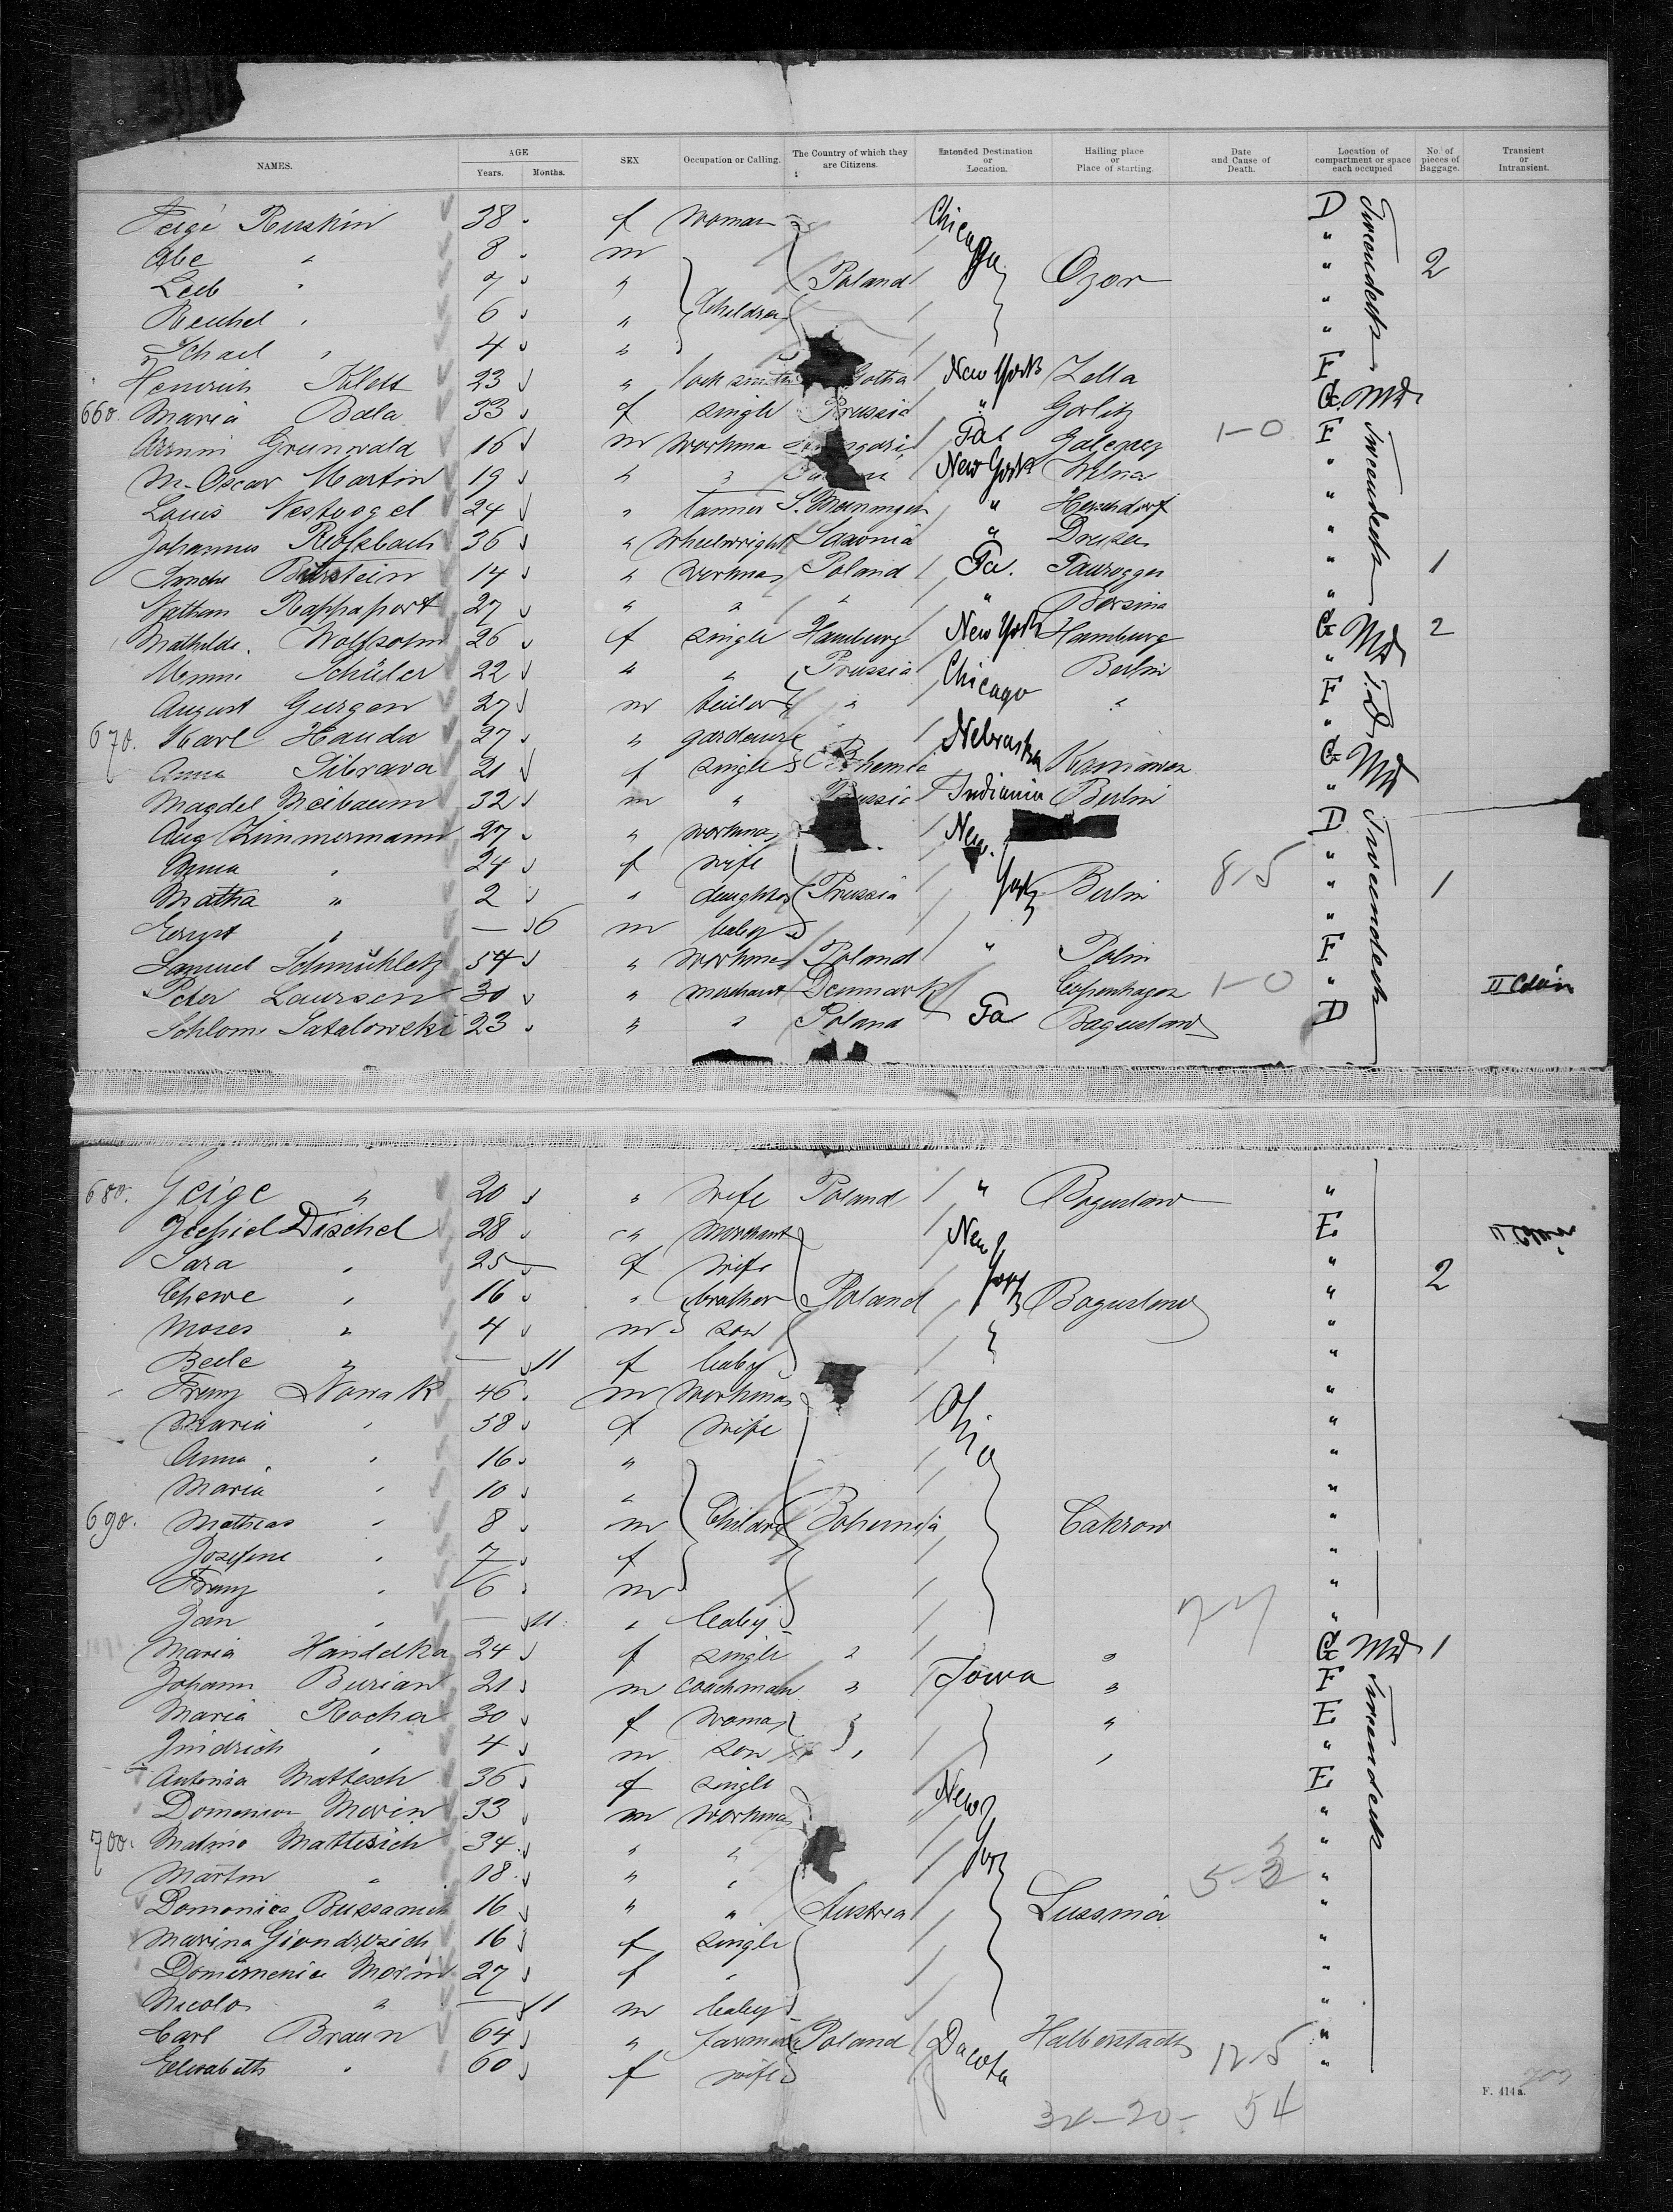 NAMES. AGE Years. Months. SEX Occupation or Calling. The Country of which they are Citizens. Intended Destination or Location. Hailing place or Place of starting. Date and Cause of Death. Location of compartment or space each occupied No. of pieces of Baggage. Transient or Intransient.
Feige Ruskin 38 f Woman Chicago D
Abe " 8 m " 2
Leib " 7 " Children Poland Ozor "
Reuhel " 6 " "
Schael " 4 " "
Heinrich Klett 23 " Gotha New York Zella F
660. Maria Bala 33 f single Prussia " Gorlitz G. Md
Armin Grunwald 16 m Workman Pa 1-0 F
M. Oscar Martin 19 " " New York Wilna "
Louis Nestvogel 24 " tanner S. Meiningen " "
Johannes 36 " Wheelwright Saxonia " "
Burstein 14 " Workman Poland Pa. Tauroggen " 1
Nathan Rappaport 27 " " " " "
Mathilde Wolfsohn 26 f single Hamburg New York Hamburg G Md 2
Schüler 22 " " Prussia Chicago Berlin "
August Gurgen 27 m " " F
670. Karl Hauda 27 " gardener " Nebraska "
Anna Sibrava 21 f single Bohemia G Md
Magdel Meibaum 32 m " Prussia Indiania Berlin "
Aug Zimmermann 27 " Workman New D
Anna " 24 f wife 8-5 "
Matha " 2 " daughter Prussia York Berlin " 1
Ernst " — 6 m baby "
Samuel 54 " Workman Poland " Polin F
Peter Laursen 30 " merchant Denmark Copenhagen 1-0 " II Cabin
Schlom Satalowski 23 " " Poland Pa Boguslaw D
680. Geige " 20 " Wife Poland " Boguslaw "
Dischel 28 " Merchant New E
Sara " 25 f Wife "
Chewe " 16 " brother Poland York Boguslaw " 2
Moses " 4 m son "
Beile " — 11 f baby "
Franz Nowak 46 m Workman Ohio "
Maria " 38 f Wife "
Anna " 16 " "
Maria " 10 " "
690. Mathias " 8 m Children Bohemia Cakrow "
Josefine " 7 f "
Franz " 6 m "
Jan " — 11 " baby 7-7 "
Maria Handelka 24 f single " " G Md 1
Johann Burian 21 m coachman " Iowa " F
Maria Rocha 30 f Woman " " E
Jindrich " 4 m son " " "
Antonia Mattesich 36 f single New E
Morin 33 m Workman "
700. Matteo Mattesich 34 " " York "
Martin " 18 " " 5-3 "
Domonica Bussanich 16 " " Austria Lussina "
Marina 16 f single "
Morin 27 f " "
Nicolo " — 11 m baby "
Carl Braun 64 " farmer Poland Dacota Halberstadt "
Elisabeth " 60 f wife 12-5 "
34-20- 54
F. 414a.